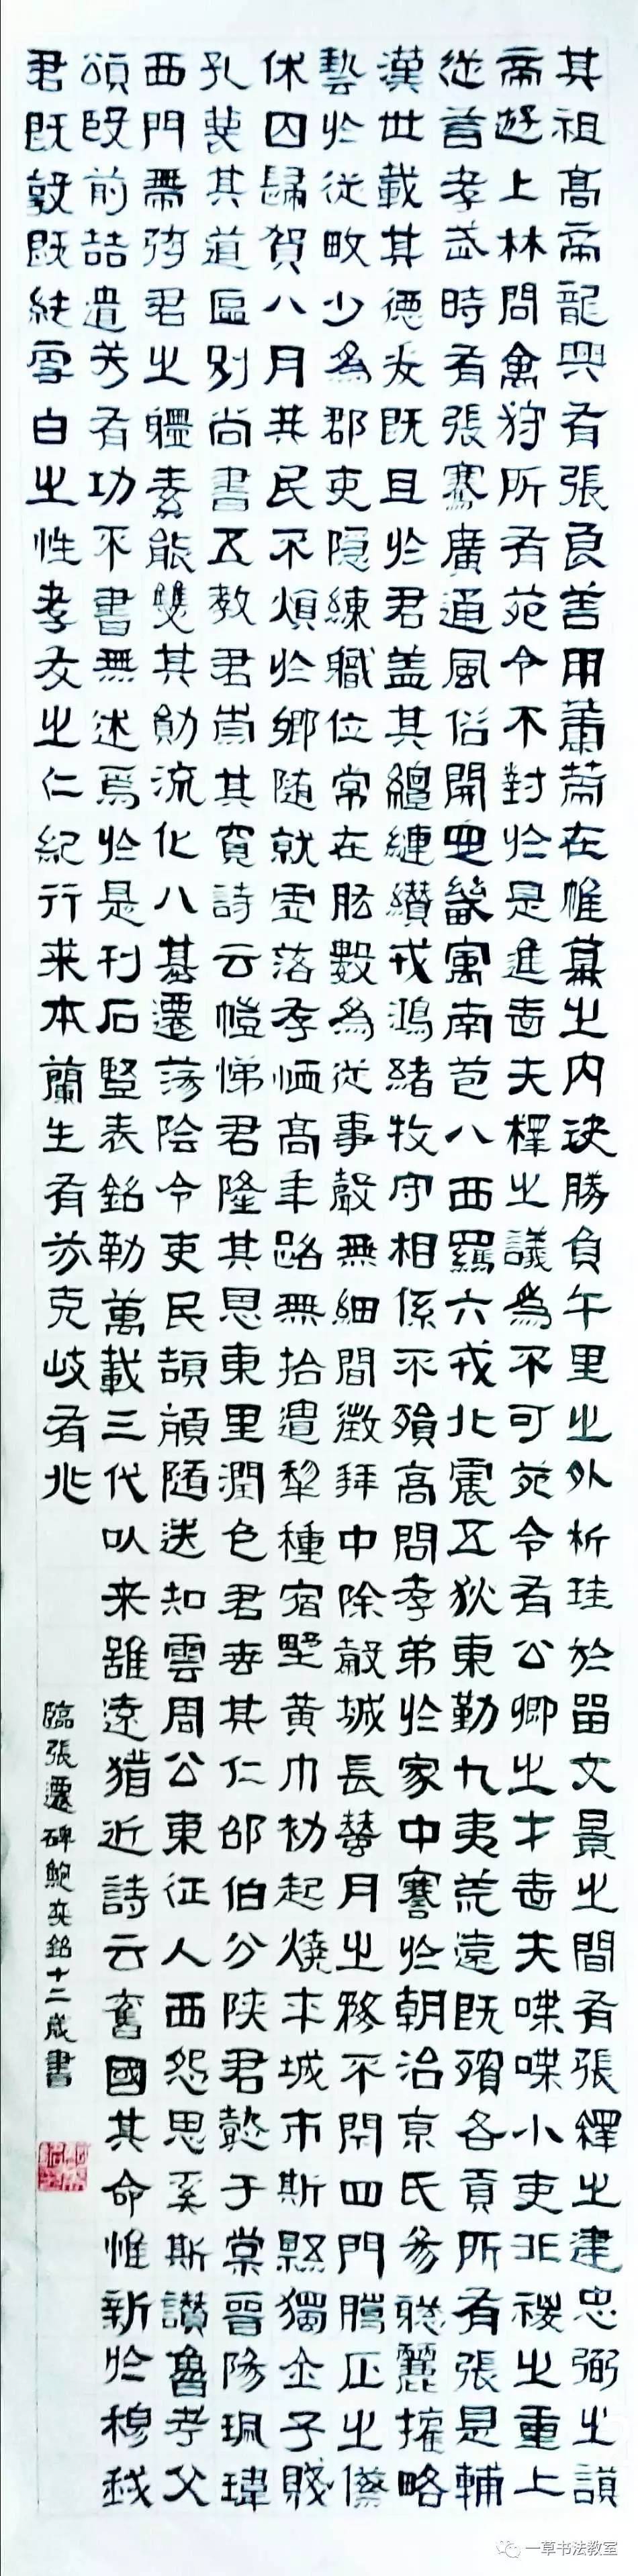 其祖高帝龍興有張良善用籌策在帷幕之内決勝負午里之外析珪於留文景之間有張釋之建忠弼之謨
帝遊上林問禽狩所有苑令不對於是進嗇夫檡之議為不可苑令有公卿之才嗇夫喋喋小吏非稷之重上
從言孝武時有張騫廣通風俗開定畿寓南苞八西羈六戎北震五狄東勤九夷荒遠既殯各貢所有張是輔
漢世載其德友既且於君蓋其繵縺纘戎鴻緒牧守相係不殞高問孝弟於家中謇於朝治京氏易聰麗權略
藝於從畋少為郡吏隱練職位常在股數為從事聲無細間徵拜中除穀城長蠶月之務不閉四門臘正之僚
休囚歸賀八月其民不煩於鄉隨就虛落存恤高年路無拾遺犁種宿野黃巾初起燒平城市斯縣獨全子賤
孔蔑其道區別尚書五教君崇其寬詩云愷悌君隆其恩東里潤色君垂其仁邵伯分陝君懿于棠晉陽珮瑋
西門帶弦君之軆素能雙其勛流化八基遷蕩陰令吏民頡頏隨送如雲周公東征人西怨思奚斯讚魯考父
頌殷前喆遺芳有功不書無述焉於是刊石豎表銘勒萬載三代以來雖遠猶近詩云舊國其命惟新於穆我
君既敦既純雪白之性孝友之仁紀行來本蘭生有芬克岐有兆
臨張遷碑鮑奕銘十二歲書
一草书法教室